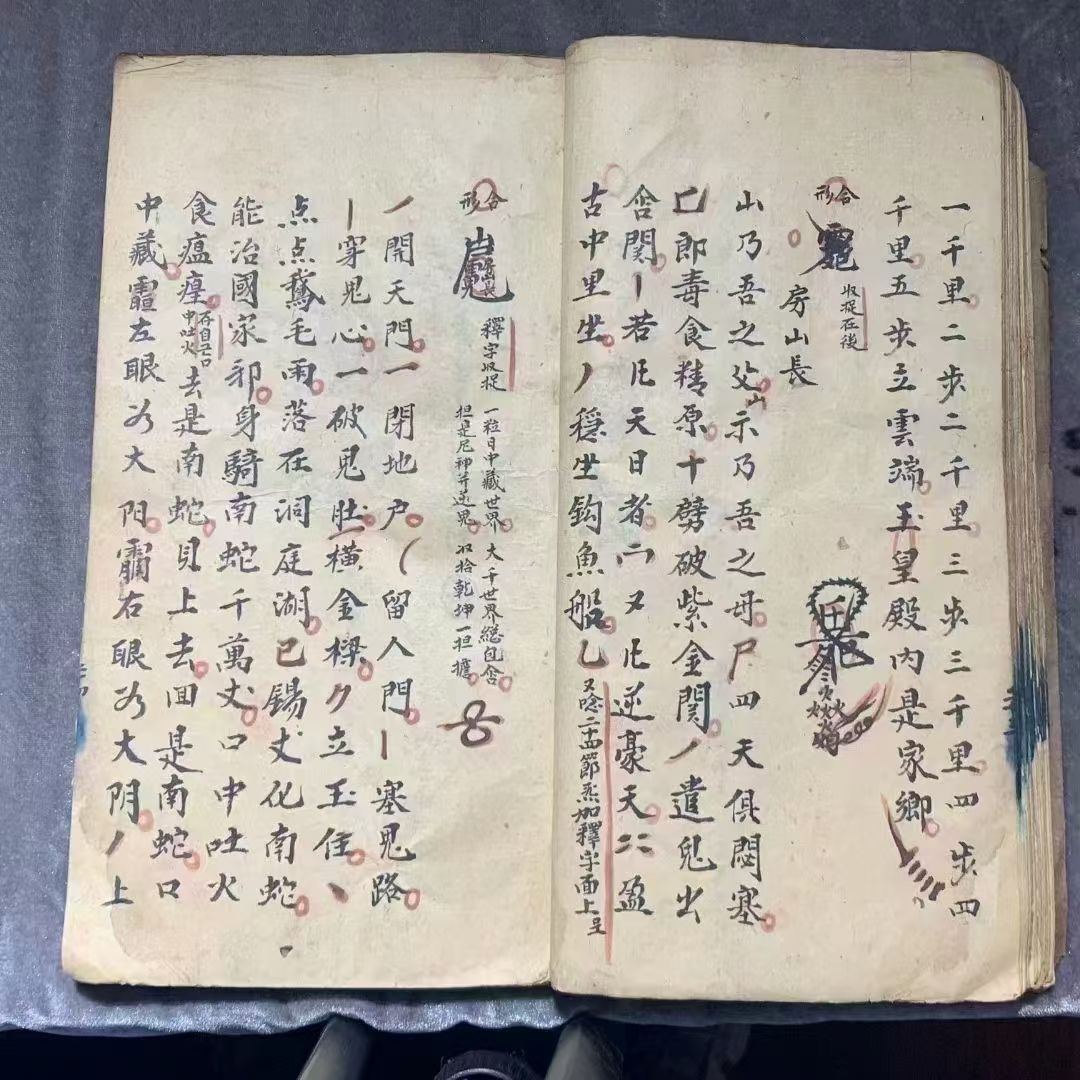 一千里二步二千里三步三千里四步四
千里五步立雲端玉皇殿內是家鄉
合形
收捉在後
房山長
山乃吾之父山示乃吾之母尸四天俱悶塞
郎毒食精原十劈破紫金関丿遣鬼出
含関丨若天日者又逆豪天盈
古中里坐丿穩坐鈎魚船
又唸二十四節炁加釋字面上呈
合形
釋字收捉
一粒日中藏世界大千世界總包含
担是尼神并逆鬼收拾乾坤一担擔
丿開天門一閉地户留人門丨塞鬼路
丨穿鬼心一破鬼肚橫金樑立玉住丶
点点鵞毛雨落在洞庭湖已錫丈化南蛇
能治國家邪身騎南蛇千萬丈口中吐火
食瘟瘟去是南蛇見上去回是南蛇口
中吐火
中藏左眼为大阳右眼为大阴丿上